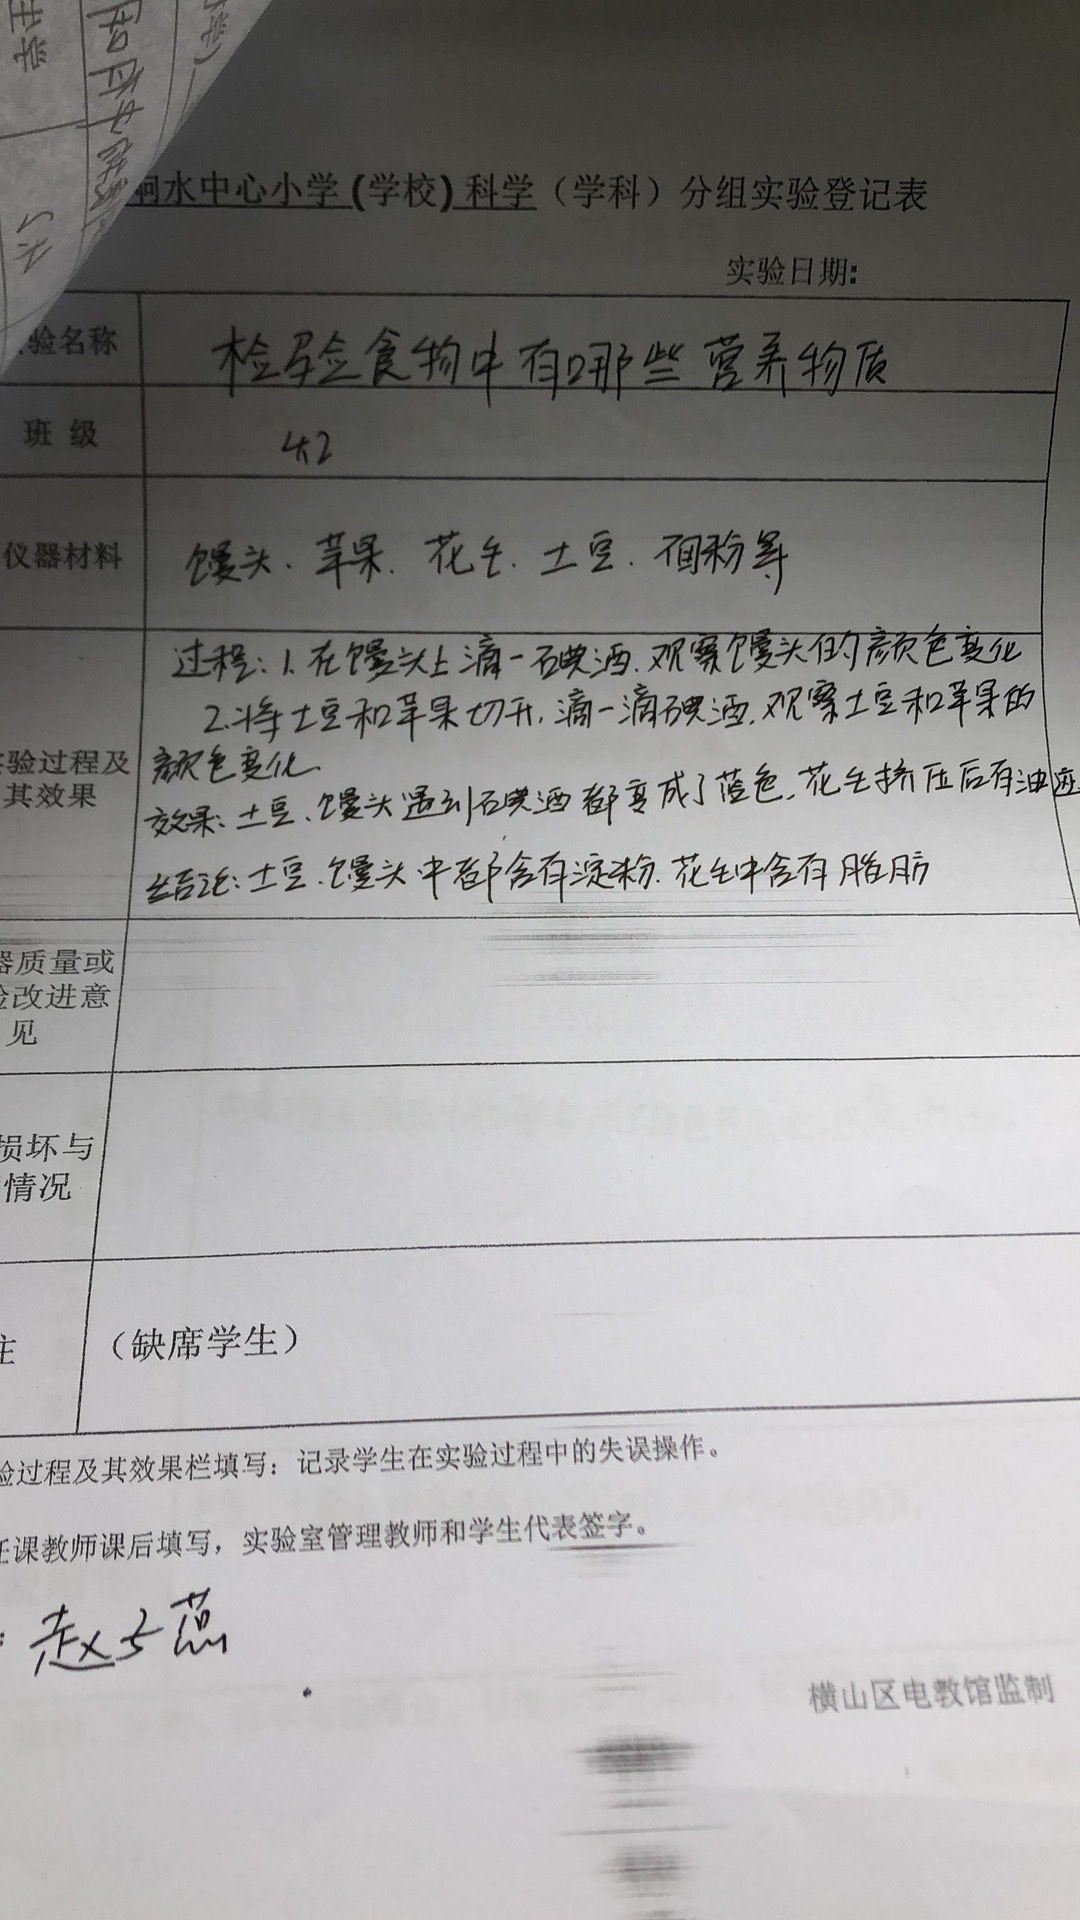 响水中心小学 (学校) 科学（学科）分组实验登记表
实验日期:
验名称
检验食物中有哪些营养物质
班 级
仪器材料
馒头、苹果、花生、土豆、面粉等
过程: 1.在馒头上滴一碘酒、观察馒头的颜色变化
2.将土豆和苹果切开,滴一滴碘酒,观察土豆和苹果的
颜色变化.
验过程及
其效果
效果: 土豆、馒头遇到碘酒都变成了蓝色,花生挤压后有油迹
结论: 土豆、馒头中都含有淀粉、花生中含有脂肪
器质量或
改进意
见
损坏与
情况
（缺席学生）
验过程及其效果栏填写：记录学生在实验过程中的失误操作。
任课教师课后填写，实验室管理教师和学生代表签字。
横山区电教馆监制